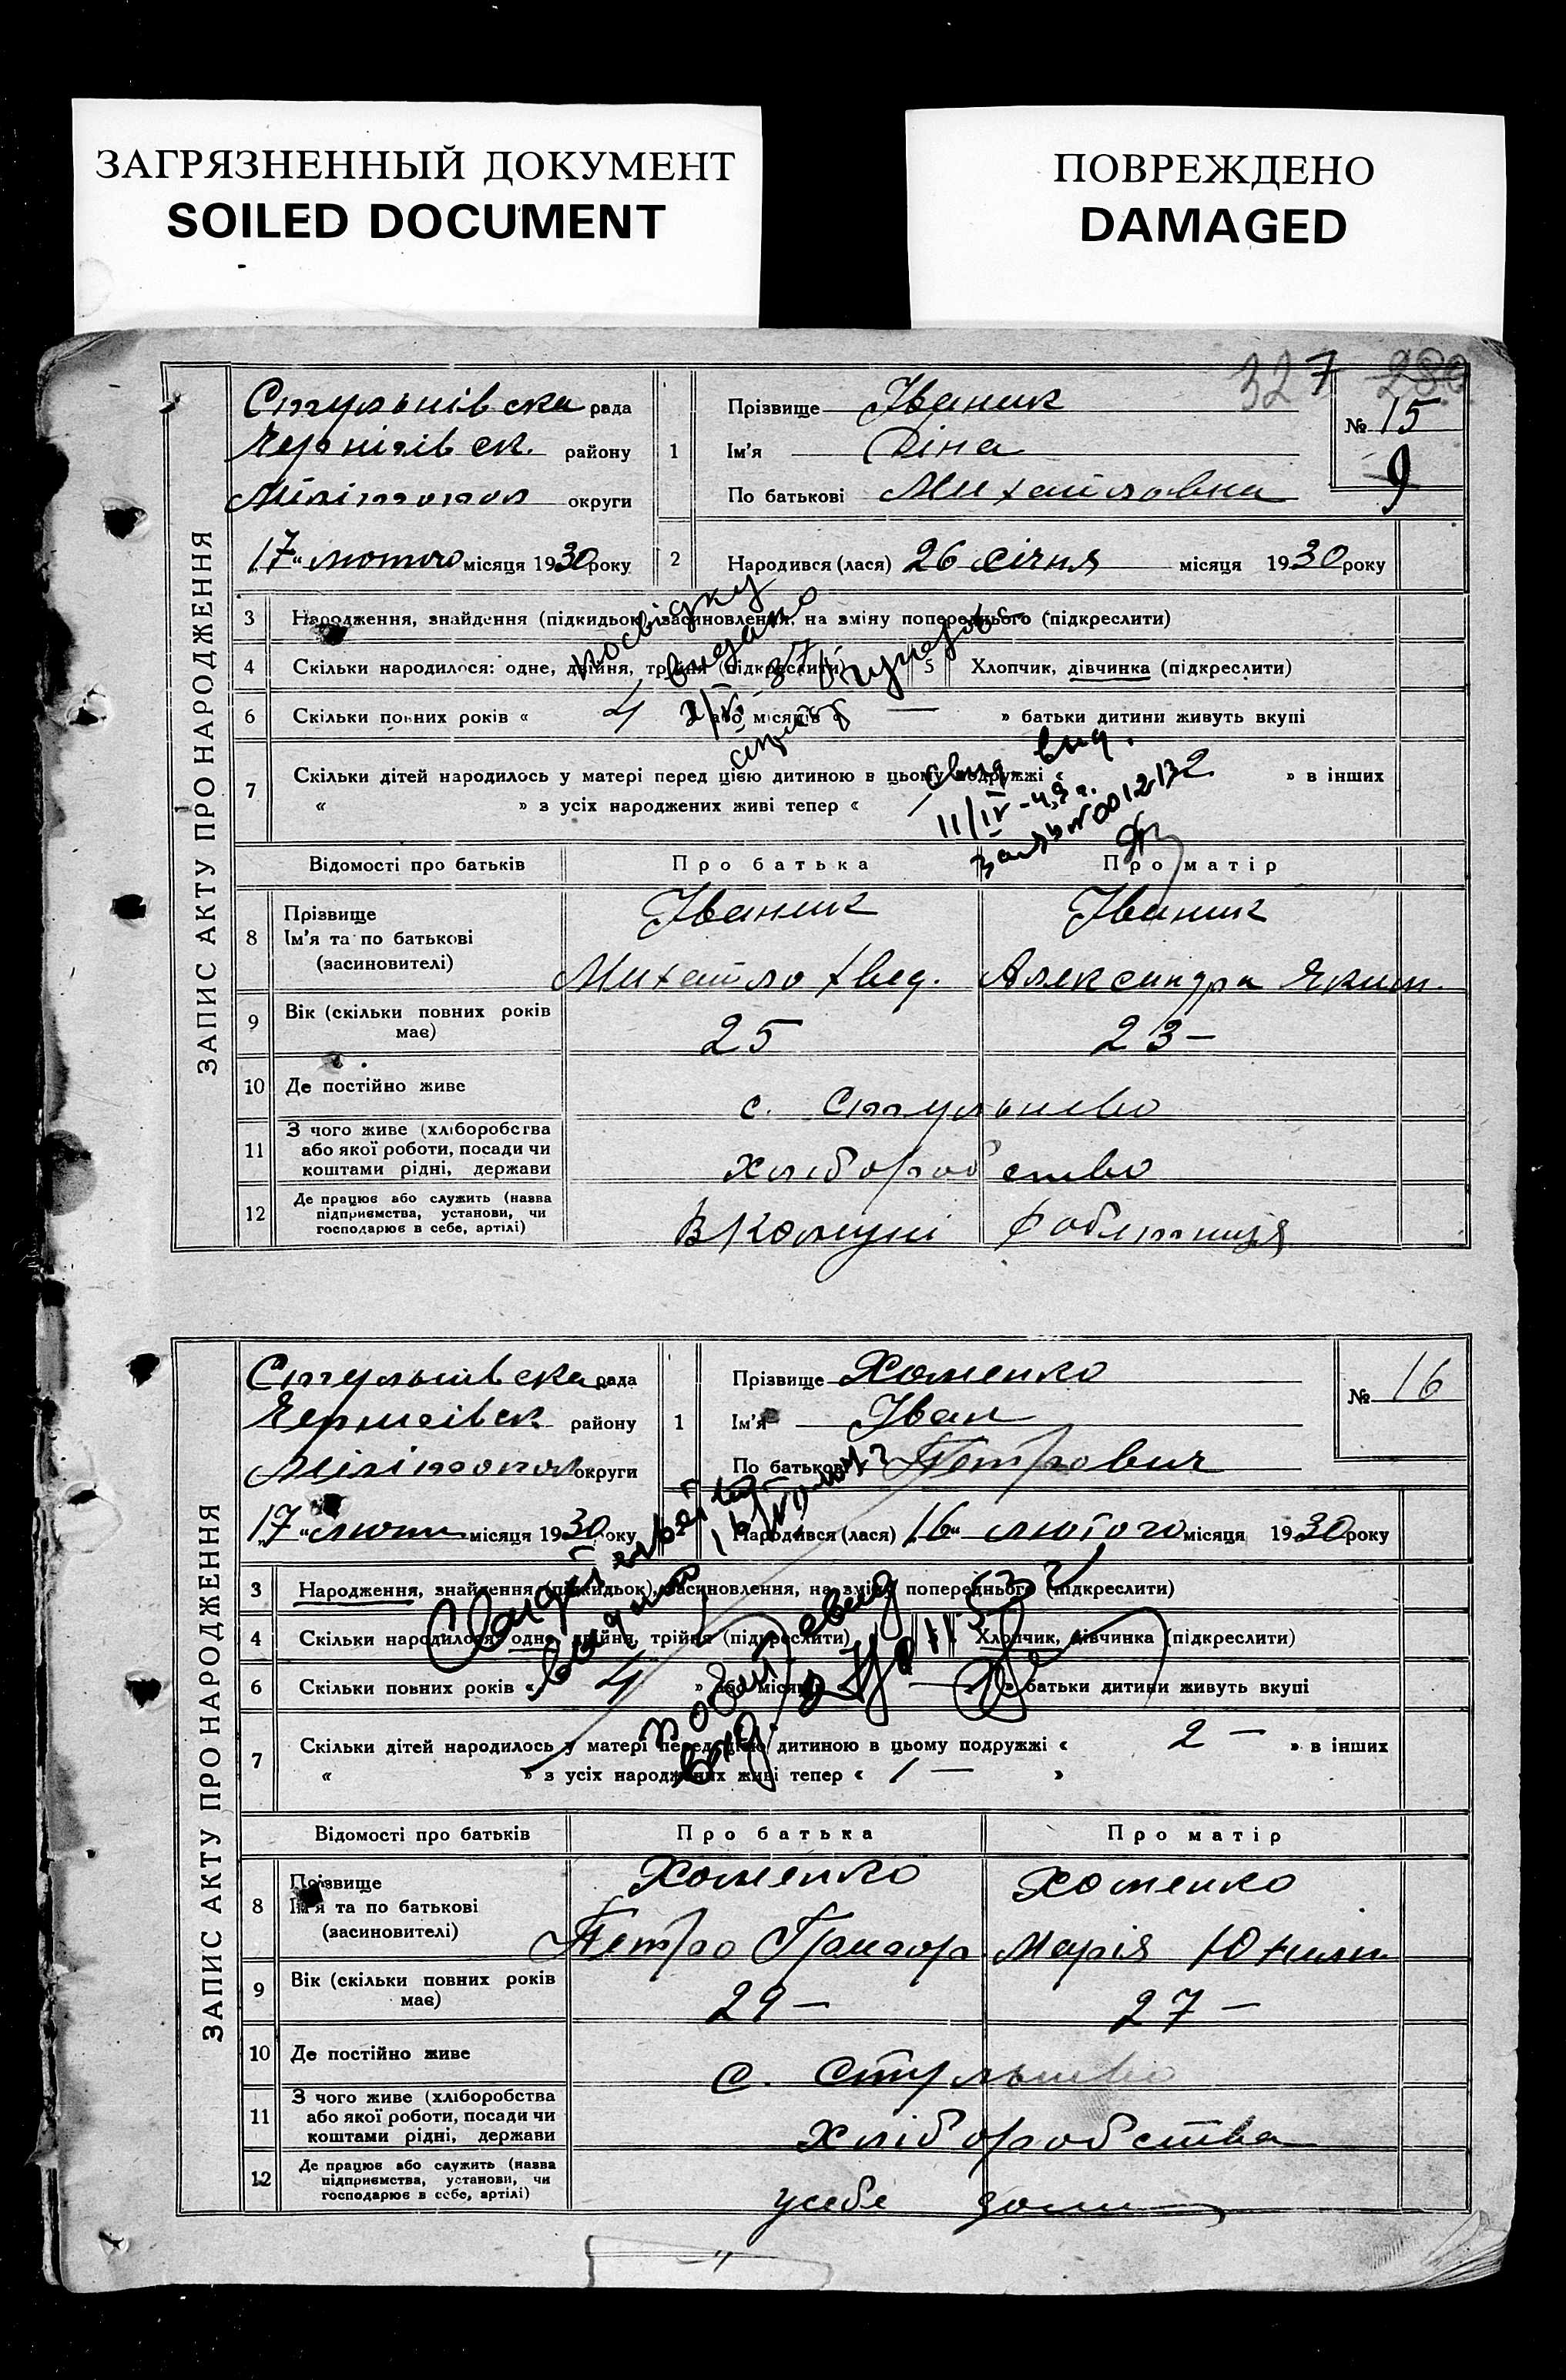 ЗАГРЯЗНЕННЫЙ ДОКУМЕНТ
SOILED DOCUMENT
ПОВРЕЖДЕНО
DAMAGED
327 280
ЗАПИС АКТУ ПРО НАРОДЖЕННЯ
Стульнівска рада
Чернігівск. району
Мілітопол округи
„17“ лютого місяця 1930 року
1 Прізвище Іваник
Ім'я Діна
По батькові Михайловна
№ 15
9
2 Народився (лася) 26 січня місяця 1930 року
3 Народження, знайдення (підкидьок), засиновлення, на зміну попереднього (підкреслити)
4 Скільки народилося: одне, двійня, трійня (підкреслити) 5 Хлопчик, дівчинка (підкреслити)
6 Скільки повних років « 4 » або місяців « — » батьки дитини живуть вкупі
7 Скільки дітей народилось у матері перед цією дитиною в цьому подружжі « » в інших
« » з усіх народжених живі тепер «
посвідку
видано
свид вид.
11/IV-49 г.
№ 0012132
Відомості про батьків Про батька Про матір
8 Прізвище Іваник Іваник
Ім'я та по батькові
(засиновителі) Михайло Хвед. Александра Яким.
9 Вік (скільки повних років має) 25 23 —
10 Де постійно живе с. Стульнево
11 З чого живе (хліборобства
або якої роботи, посади чи
коштами рідні, держави хліборобство
12 Де працює або служить (назва
підприємства, установи, чи
господарює в себе, артілі) В Комуні
ЗАПИС АКТУ ПРО НАРОДЖЕННЯ
Стульнівска рада
Чернигівск. району
Мілітопол округи
„17“ люти місяця 1930 року
1 Прізвище Хоменко
Ім'я Іван
По батькові Петрович
№ 16
Народився (лася) „16“ лютого місяця 1930 року
3 Народження, знайдення (підкидьок), засиновлення, на зміну попереднього (підкреслити)
4 Скільки народилося: одне, двійня, трійня (підкреслити) Хлопчик, дівчинка (підкреслити)
6 Скільки повних років « 4 » або місяців — » батьки дитини живуть вкупі
7 Скільки дітей народилось у матері перед цією дитиною в цьому подружжі « 2 — » в інших
« » з усіх народжених живі тепер « 1 — »
Відомості про батьків Про батька Про матір
8 Прізвище Хоменко Хоменко
Ім'я та по батькові
(засиновителі) Петро Григор. Марія
9 Вік (скільки повних років має) 29 — 27 —
10 Де постійно живе с. Стульнево
11 З чого живе (хліборобства
або якої роботи, посади чи
коштами рідні, держави хліборобства
12 Де працює або служить (назва
підприємства, установи, чи
господарює в себе, артілі) усебе дома